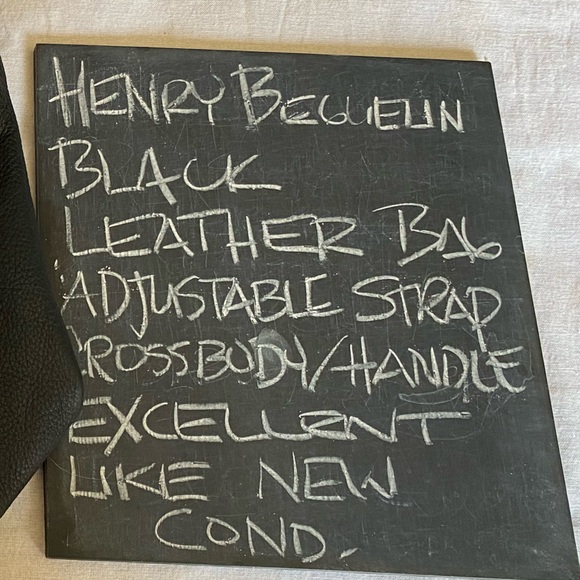 HENRY BEGUELIN
BLACK
LEATHER BAG
ADJUSTABLE STRAP
CROSSBODY/HANDLE
EXCELLENT
LIKE NEW
COND.